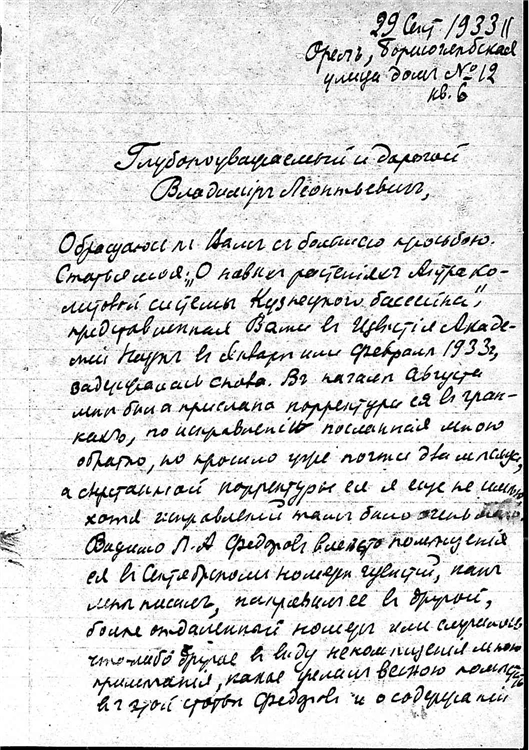 29 Сент 1933 г
Орелъ, Борисоглебская
улица домъ № 12
кв. 6
Глубокоуважаемый и дорогой
Владимiръ Леонтьевичъ,
Обращаюсь къ Вамъ съ большою просьбою.
Статья моя: „О новых растенiяхъ Антрако-
литовой системы Кузнецкого бассейна",
представленная Вами въ Известiя Акаде-
мiи Наукъ въ Январе или Феврале 1933 г,
задержалась снова. Въ начале Августа
мне была прислана корректура ея въ гран-
кахъ, по исправленiи посланная мною
обратно, но прошло уже почти два месяца,
а сверстанной корректуры ея я еще не имею,
хотя исправленiй тамъ было очень мало.
Видимо Л. А. Федоровъ вместо помещенiя
ея въ Сентябрьском номере Известiй, какъ
мне писалъ, направилъ ее въ другой,
более отдаленный номеръ или случилось
что-либо другое въ виду непомещенiя мною
примечанiя, какое желалъ весною поместить
въ этой статье Федоровъ и о содержанiи